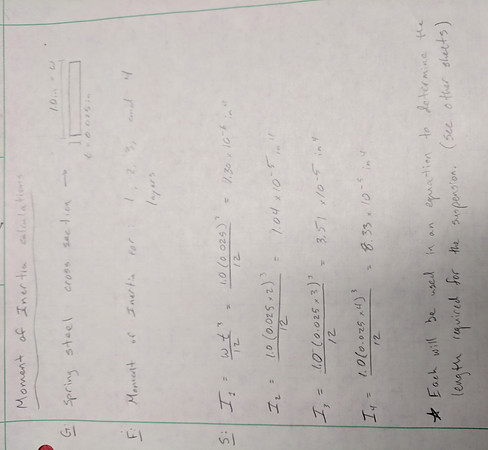 Moment of Inertia calculations
G: Spring steel cross section → 1.0 in = w
t = 0.025 in
F: Moment of Inertia for: 1, 2, 3, and 4
layers
S: I₁ = wt³/12 = 1.0(0.025)³/12 = 1.30 × 10⁻⁶ in⁴
I₂ = 1.0(0.025×2)³/12 = 1.04 × 10⁻⁵ in⁴
I₃ = 1.0(0.025×3)³/12 = 3.51 × 10⁻⁵ in⁴
I₄ = 1.0(0.025×4)³/12 = 8.33 × 10⁻⁵ in⁴
* Each will be used in an equation to determine the
length required for the suspension. (see other sheets)